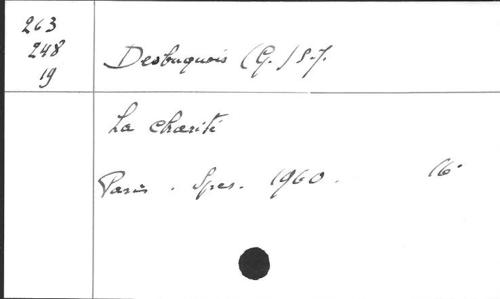 263
248
19
Desbuquois (G.) S.J.
La charité
Paris. Spes. 1960. 16°